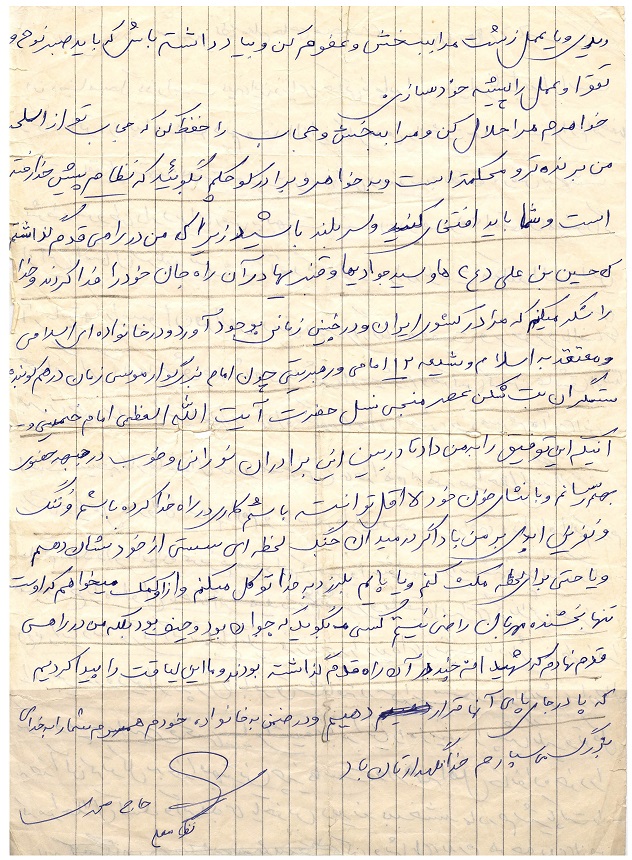 دیدی و یا عمل زشت مرا ببخش و عفوم کن و بیاد داشته باش که باید صبر نوح و
تقوا و عمل را پیشه خود سازی.
خواهرم مرا حلال کن و مرا ببخش و حجاب را حفظ کن که حجاب تو از اسلحه
من برنده تر و محکمتر است و به خواهر و برادر کوچکم بگوئید که نظام پیش خدا رفته
است و شما باید افتخار کنید و سربلند باشید زیرا که من در راهی قدم گذاشتم
که حسین بن علی (ع) ها و سید جوادیها و قندیها در آن راه جان خود را فدا کردند و خدا
را شکر میکنم که مرا در کشور ایران و در چنین زمانی بوجود آورد و در خانواده ای اسلامی
و معتقد به اسلام و شیعه ۱۲ امامی و رهبریتی چون امام بزرگوار موسی زمان درهم کوبنده
ستمگران بت شکن عصر منجی نسل حضرت آیت الله العظمی امام خمینی و
آنکه این توفیق را به من داد تا در بین این برادران نورانی و خوب در جبهه حضور
بهم رسانم و با نثار خون خود لااقل توانسته باشم کاری در راه خدا کرده باشم و ننگ
و نفرین ابدی بر من باد اگر در میدان جنگ لحظه ای سستی از خود نشان دهم
و یا حتی برای لحظه مکث کنم و یا پایم بلرزد به خدا توکل میکنم و از او کمک میخواهم که اوست
تنها بخشنده مهربان راضی نیستم کسی بگوید که جوان بود و حیف بود بلکه من در راهی
قدم نهادم که شهید در آن راه قدم گذاشته بودند و ما این لیاقت را پیدا کردیم
که پا در جای پای آنها قرار دهیم و در ضمن به خانواده خودم شما را به خدای
بزرگ می سپارم خدا نگهدارتان باد
حاج